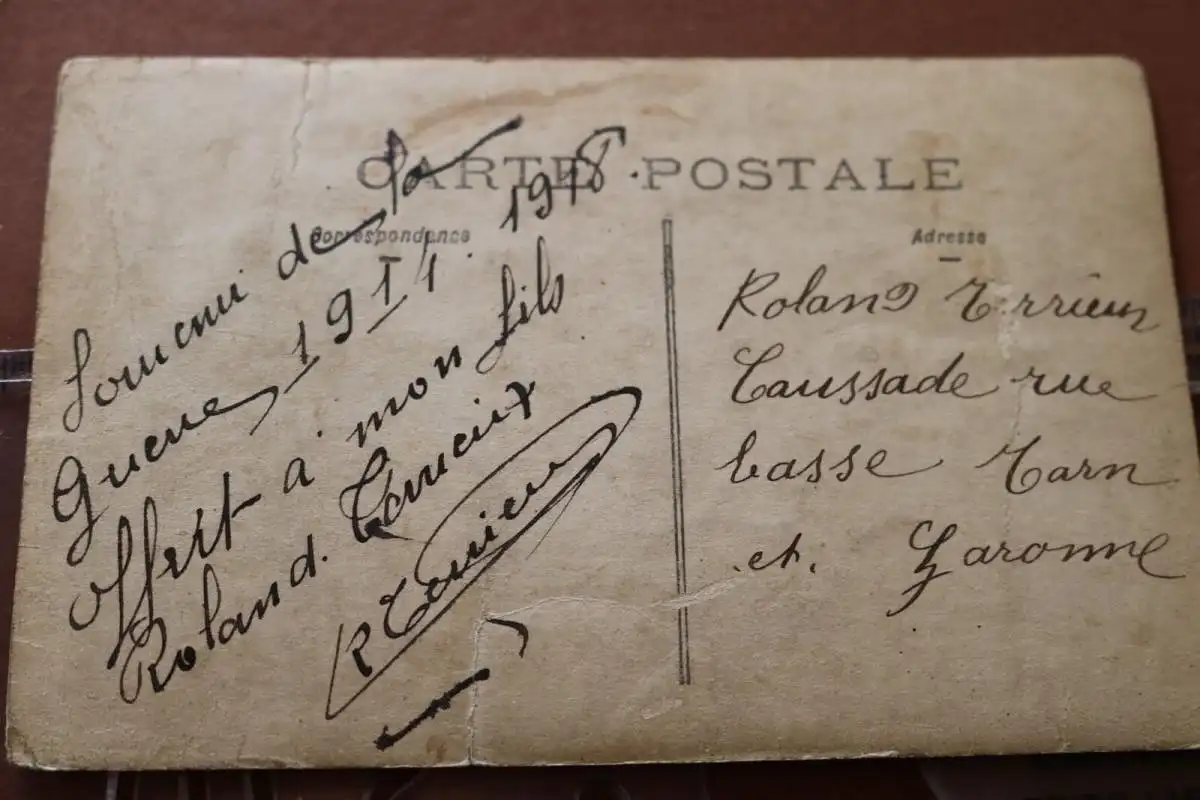 CARTE POSTALE
Correspondance
Adresse
Souvenir de la
Guerre 1914. 1918.
offert a mon fils
Roland. Terrieux
R Terrieux
Roland Terrieux
Caussade rue
basse Tarn
.et. Garonne